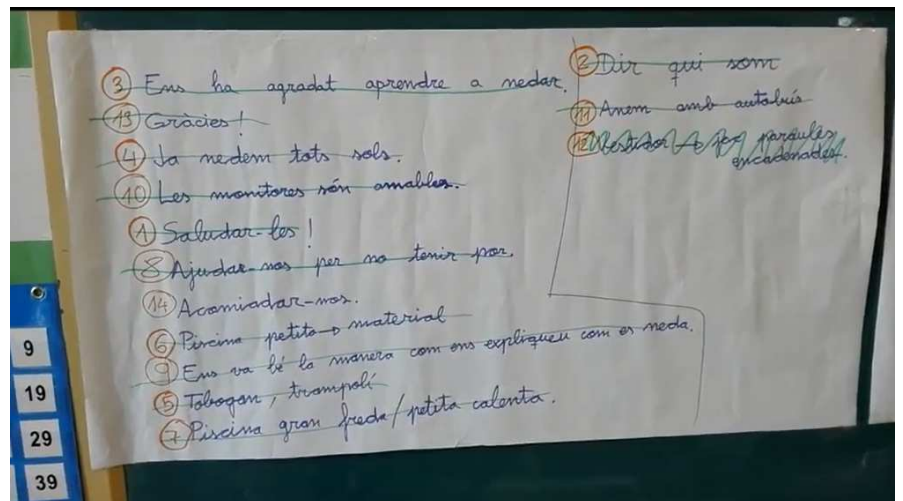 ③ Ens ha agradat aprendre a nedar.
⑬ Gràcies!
④ Ja nedem tots sols.
⑩ Les monitores són amables.
① Saludar-les!
⑧ Ajudar-nos per no tenir por.
⑭ Acomiadar-nos.
⑥ Piscina petita → material
⑨ Ens va bé la manera com ens expliqueu com es neda.
⑤ Tobogan, trampolí
⑦ Piscina gran freda / petita calenta.
② Dir qui som
⑪ Anem amb autobús
⑫ Vestidor → fer paraules
encadenades.
9
19
29
39